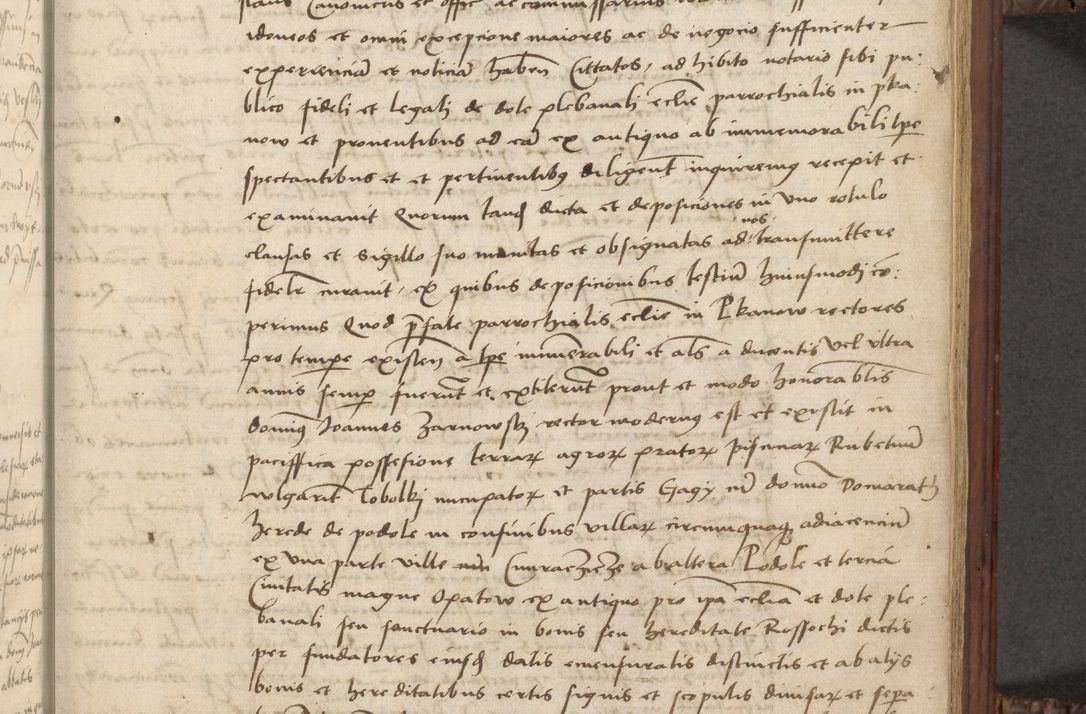 idoneos et omni excepcione maiores ac de negocio sufficienter
experienciā et noticiā habeñ Cittatos, ad hibito notario sibi pu:
blico fideli et legali de dote plebanali ecclie parrochialis in pka:
now et proventibus ad eā ex antiquo ab immemorabili tpe
spectantibus et et pertinentibus diligenter inquirens recepit et
examinavit Quorum tandē dicta et deposiciones in uno rotulo
clausas et sigillo suo munitas et obsignatas ad nos transmittere
fidelr curavit, ex quibus deposicionibus testiū huiusmodi cō:
perimus Quod prefate parrochialis ecclie in Pkanow rectores
pro tempore existeñ a tpe immerabili et als a ducentis vel ultra
annis semper fuerunt et extiterunt prout et modo honorablis
dominus Joannes Zarnowskj rector modernus est et existit in
paciffica possesione terrar agror prator piscinar Rubetum
wlgarit Lobolki nuncupator et partis Gagy cū domino Domarath
herede de podole in confinibus villar circumquaq adiacenciū
ex una parte ville Cunraczicze ab altera Podole et tercia
Civitatis magne Opatow ex antiquo pro ipā eccliā et dote ple:
banali seu sanctuario in bonis seu hereditate Rossochi dictis
per fundatores eiusdē datis emensuratis distinctis et ab alys
bonis et hereditatibus certis signis et scopulis divisar et sepa: